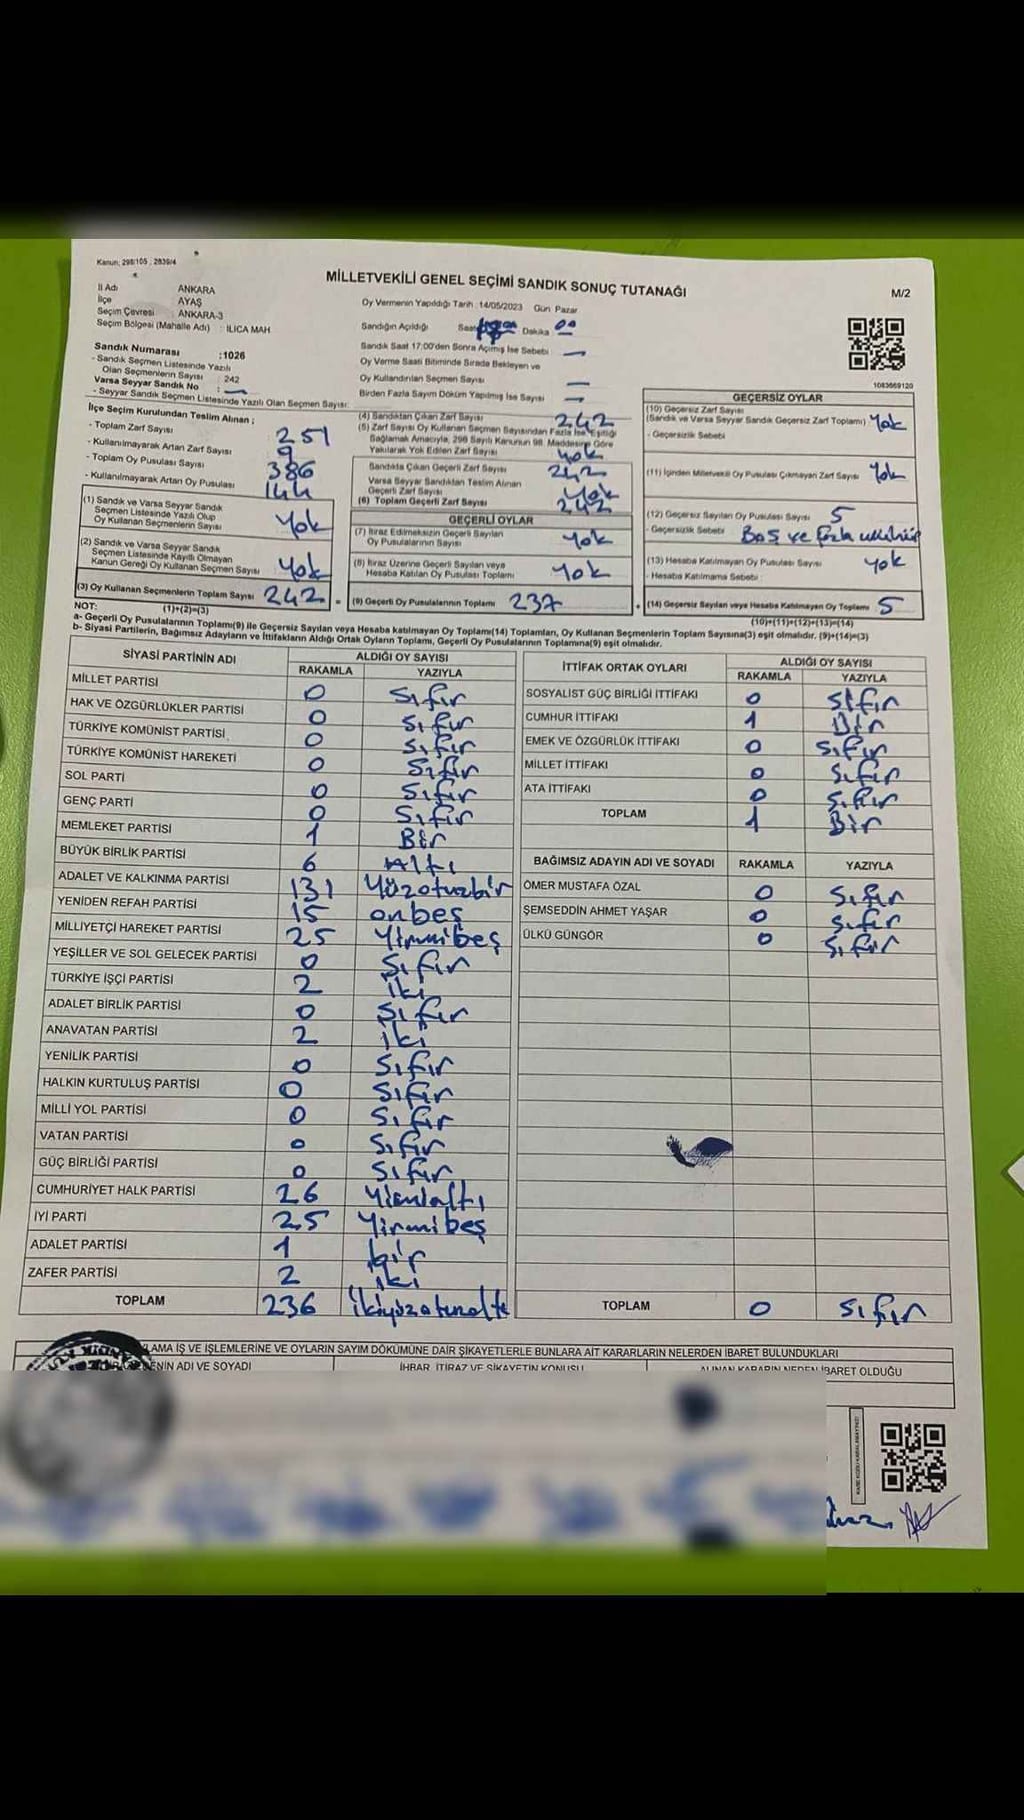 Kanun: 298/105 , 2839/4
MİLLETVEKİLİ GENEL SEÇİMİ SANDIK SONUÇ TUTANAĞI
M/2
İl Adı ANKARA
İlçe AYAŞ
Seçim Çevresi : ANKARA-3
Seçim Bölgesi (Mahalle Adı) : ILICA MAH
Sandık Numarası :1026
- Sandık Seçmen Listesinde Yazılı
Olan Seçmenlerin Sayısı : 242
Varsa Seyyar Sandık No : —
- Seyyar Sandık Seçmen Listesinde Yazılı Olan Seçmen Sayısı:
Oy Vermenin Yapıldığı Tarih :14/05/2023 Gün Pazar
Sandığın Açıldığı Saat Dakika 00
Sandık Saat 17:00'den Sonra Açılmış İse Sebebi —
Oy Verme Saati Bitiminde Sırada Bekleyen ve
Oy Kullandırılan Seçmen Sayısı —
Birden Fazla Sayım Döküm Yapılmış İse Sayısı —
1083669120
İlçe Seçim Kurulundan Teslim Alınan ;
- Toplam Zarf Sayısı 251
- Kullanılmayarak Artan Zarf Sayısı 9
- Toplam Oy Pusulası Sayısı 386
- Kullanılmayarak Artan Oy Pusulası 144
(1) Sandık ve Varsa Seyyar Sandık
Seçmen Listesinde Yazılı Olup
Oy Kullanan Seçmenlerin Sayısı Yok
(2) Sandık ve Varsa Seyyar Sandık
Seçmen Listesinde Kayıtlı Olmayan
Kanun Gereği Oy Kullanan Seçmen Sayısı Yok
(3) Oy Kullanan Seçmenlerin Toplam Sayısı 242 =
(4) Sandıktan Çıkan Zarf Sayısı 242
(5) Zarf Sayısı Oy Kullanan Seçmen Sayısından Fazla İse Eşitliği
Sağlamak Amacıyla, 298 Sayılı Kanunun 98. Maddesine Göre
Yakılarak Yok Edilen Zarf Sayısı Yok
Sandıkta Çıkan Geçerli Zarf Sayısı 242
Varsa Seyyar Sandıktan Teslim Alınan
Geçerli Zarf Sayısı Yok
(6) Toplam Geçerli Zarf Sayısı 242
GEÇERLİ OYLAR
(7) İtiraz Edilmeksizin Geçerli Sayılan
Oy Pusulalarının Sayısı Yok
(8) İtiraz Üzerine Geçerli Sayılan veya
Hesaba Katılan Oy Pusulası Toplamı Yok
(9) Geçerli Oy Pusulalarının Toplamı 237 +
GEÇERSİZ OYLAR
(10) Geçersiz Zarf Sayısı
(Sandık ve Varsa Seyyar Sandık Geçersiz Zarf Toplamı) Yok
- Geçersizlik Sebebi
(11) İçinden Milletvekili Oy Pusulası Çıkmayan Zarf Sayısı Yok
(12) Geçersiz Sayılan Oy Pusulası Sayısı 5
- Geçersizlik Sebebi : Boş ve fazla mühür
(13) Hesaba Katılmayan Oy Pusulası Sayısı Yok
- Hesaba Katılmama Sebebi :
(14) Geçersiz Sayılan veya Hesaba Katılmayan Oy Toplamı 5
NOT: (1)+(2)=(3) (10)+(11)+(12)+(13)=(14)
a- Geçerli Oy Pusulalarının Toplamı(9) ile Geçersiz Sayılan veya Hesaba katılmayan Oy Toplamı(14) Toplamları, Oy Kullanan Seçmenlerin Toplam Sayısına(3) eşit olmalıdır. (9)+(14)=(3)
b- Siyasi Partilerin, Bağımsız Adayların ve İttifakların Aldığı Ortak Oyların Toplamı, Geçerli Oy Pusulalarının Toplamına(9) eşit olmalıdır.
SİYASİ PARTİNİN ADI ALDIĞI OY SAYISI
RAKAMLA YAZIYLA
MİLLET PARTİSİ 0 Sıfır
HAK VE ÖZGÜRLÜKLER PARTİSİ 0 Sıfır
TÜRKİYE KOMÜNİST PARTİSİ 0 Sıfır
TÜRKİYE KOMÜNİST HAREKETİ 0 Sıfır
SOL PARTİ 0 Sıfır
GENÇ PARTİ 0 Sıfır
MEMLEKET PARTİSİ 1 Bir
BÜYÜK BİRLİK PARTİSİ 6 Altı
ADALET VE KALKINMA PARTİSİ 131 Yüzotuzbir
YENİDEN REFAH PARTİSİ 15 onbeş
MİLLİYETÇİ HAREKET PARTİSİ 25 Yirmibeş
YEŞİLLER VE SOL GELECEK PARTİSİ 0 Sıfır
TÜRKİYE İŞÇİ PARTİSİ 2 iki
ADALET BİRLİK PARTİSİ 0 Sıfır
ANAVATAN PARTİSİ 2 iki
YENİLİK PARTİSİ 0 Sıfır
HALKIN KURTULUŞ PARTİSİ 0 Sıfır
MİLLİ YOL PARTİSİ 0 Sıfır
VATAN PARTİSİ 0 Sıfır
GÜÇ BİRLİĞİ PARTİSİ 0 Sıfır
CUMHURİYET HALK PARTİSİ 26 Yirmialtı
İYİ PARTİ 25 Yirmibeş
ADALET PARTİSİ 1 bir
ZAFER PARTİSİ 2 iki
TOPLAM 236 ikiyüzotuzaltı
İTTİFAK ORTAK OYLARI ALDIĞI OY SAYISI
RAKAMLA YAZIYLA
SOSYALİST GÜÇ BİRLİĞİ İTTİFAKI 0 Sıfır
CUMHUR İTTİFAKI 1 Bir
EMEK VE ÖZGÜRLÜK İTTİFAKI 0 Sıfır
MİLLET İTTİFAKI 0 Sıfır
ATA İTTİFAKI 0 Sıfır
TOPLAM 1 Bir
BAĞIMSIZ ADAYIN ADI VE SOYADI RAKAMLA YAZIYLA
ÖMER MUSTAFA ÖZAL 0 Sıfır
ŞEMSEDDİN AHMET YAŞAR 0 Sıfır
ÜLKÜ GÜNGÖR 0 Sıfır
TOPLAM 0 Sıfır
LAMA İŞ VE İŞLEMLERİNE VE OYLARIN SAYIM DÖKÜMÜNE DAİR ŞİKAYETLERLE BUNLARA AİT KARARLARIN NELERDEN İBARET BULUNDUKLARI
ADI VE SOYADI İHBAR, İTİRAZ VE ŞİKAYETİN KONUSU ALINAN KARARIN NEDEN İBARET OLDUĞU